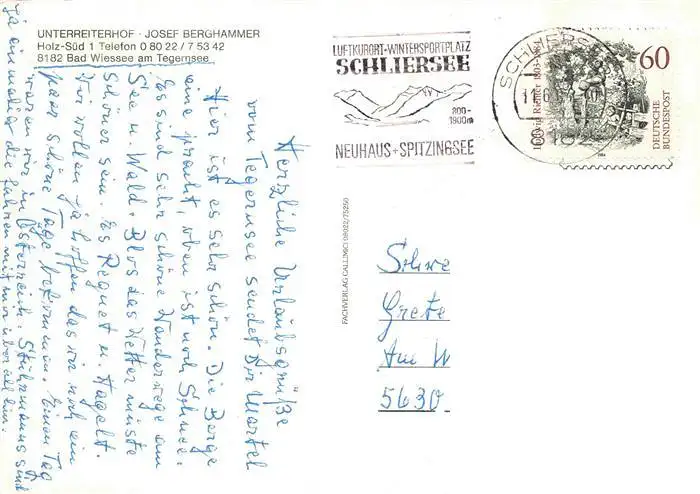 UNTERREITERHOF · JOSEF BERGHAMMER
Holz-Süd 1 Telefon 0 80 22 / 7 53 42
8182 Bad Wiessee am Tegernsee
LUFTKURORT-WINTERSPORTPLATZ
SCHLIERSEE
800-
1900m
NEUHAUS+SPITZINGSEE
SCHLIERSEE
60
DEUTSCHE
BUNDESPOST
Ludwig Richter 1803-1884
Herzliche Urlaubsgrüße
vom Tegernsee sendet Dir Martel
Hier ist es sehr schön. Die Berge
eine pracht, oben ist noch Schnee.
Es sind sehr schöne Wanderwege am
See u. Wald. Blos das Wetter müsste
schöner sein. Es Regnet u. Hagelt.
Wir wollen ja hoffen das wir noch ein
paar schöne Tage bekommen. Einen Tag
waren wir in Österreich. Stuhrmanns sind
ja ein maler die fahren mit nur über all hin.
FACHVERLAG CALLIMICI 08022/75250
Schwe
Grete
Am W
5630